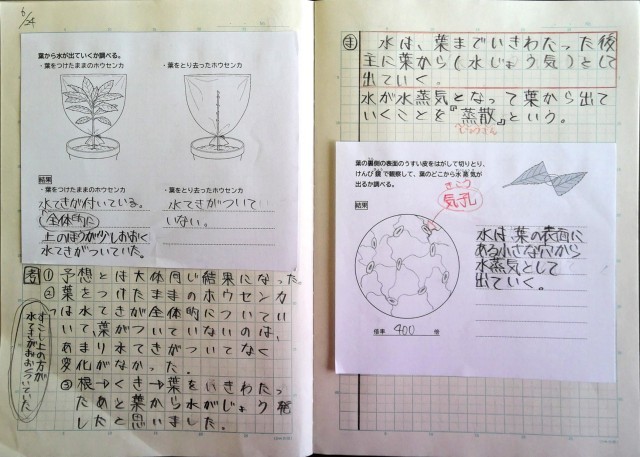 6/24
葉から水が出ていくか調べる。
・葉をつけたままのホウセンカ
・葉をとり去ったホウセンカ
結果
・葉をつけたままのホウセンカ
水てきが付いている。
(全体的に)
上のほうが少しおおく
水てきがついていた。
・葉をとり去ったホウセンカ
水てきがついて
いない。
考 ① 予想とは大体同じ結果になった
② 葉をつけたままのホウセンカ
は水てきが全体的についてい
いて、葉がついていないのは、
あまり水てきがついてなく
変化がなかった。
③ 根→くき→葉をいきわたっ
たあと葉から水がじょう発
したと思いました。
すこし上の方が
水てきがおおくついていた
ま 水は、葉までいきわたった後
主に葉から(水じょう気)として
出ていく。
水が水蒸気となって葉から出て
いくことを『蒸散』という。
じょうさん
葉の裏側の表面のうすい皮をはがして切りとり、
けんび鏡で観察して、葉のどこから水蒸気が
出るか調べる。
結果
きこう
気孔
倍率 400 倍
水は、葉の表面に
ある小さな穴から
水蒸気として
出ていく。